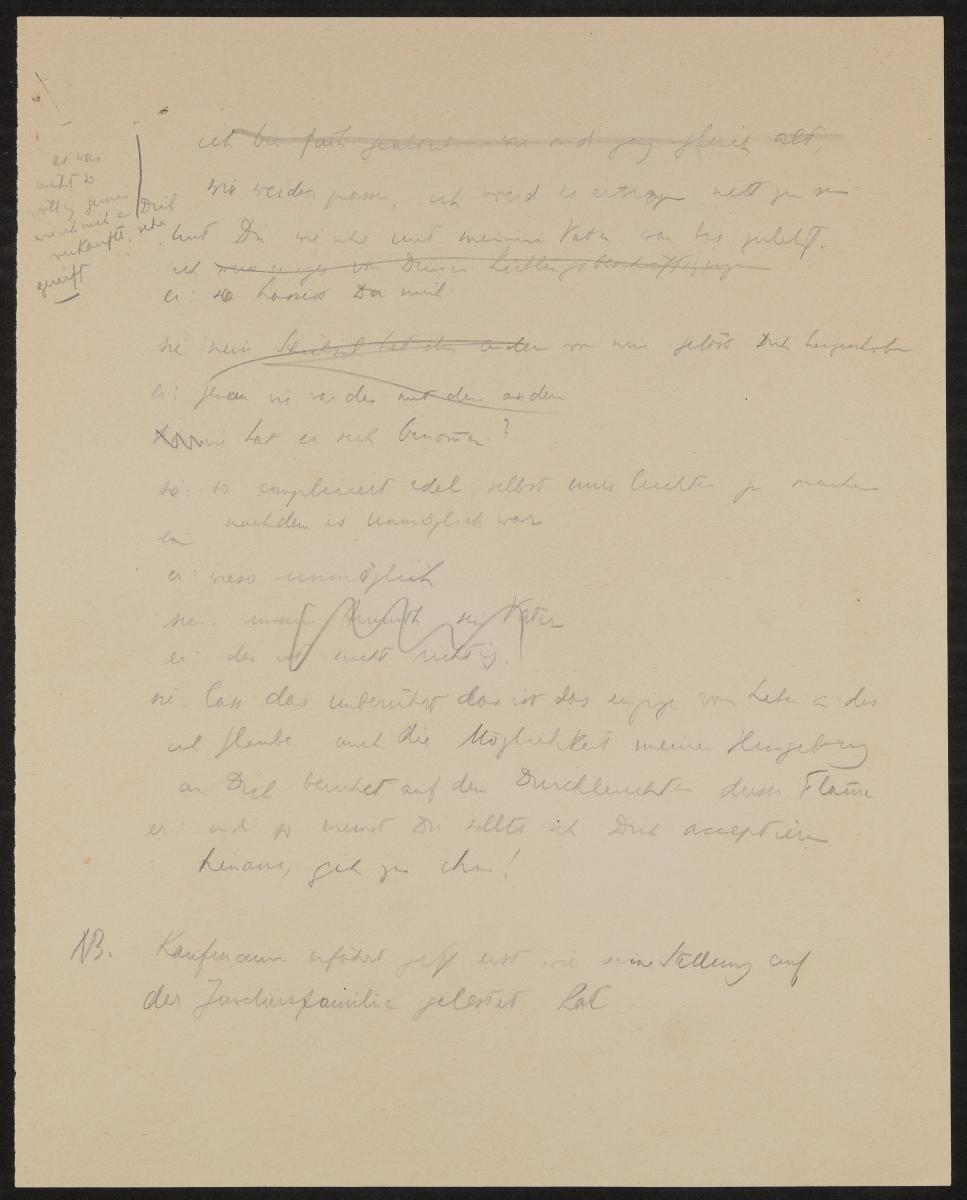 es war
nicht so
völlig
wie ich mich an Dich
verkaufte, sehr
gereift
ich bin früh gealtert wir sind ganz gleich alt,
wir werden passen, ich werd es ertragen nett zu sein
mit Dir wie ich mit meinem Vater war bis zuletzt.
ich von Deinen Lieblingsbeschäftigungen
er: so hassest Du mich
sie nein Schicksal hat den anderen von mir gelöst Dich
er: wie war das mit dem andern
wie hat er sich benommen?
sie: so compliciert edel, selbst uns leichter zu machen
nachdem es unmöglich war
er: wieso unmöglich
sie: unsere Armuth sein Vater
er: das ist nicht richtig.
sie: lass das unberührt das ist das einzige vom Leben an das
ich glaube. auch die Möglichkeit meiner Hingebung
an Dich beruhet auf dem Durchleuchten dieser Flamme
er: und so meinst Du sollte ich Dich acceptieren
hinaus, geh zu ihm!
NB. Kaufmann erfährt jetzt erst wie seine Stellung auf
der familie gelastet hat